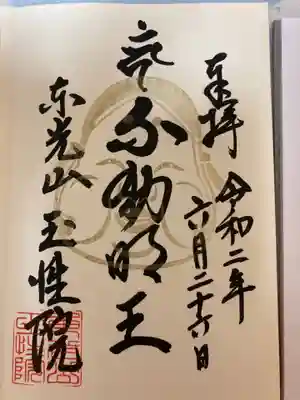 奉拝
令和二年
六月二十六日
不動明王
東光山
玉性院